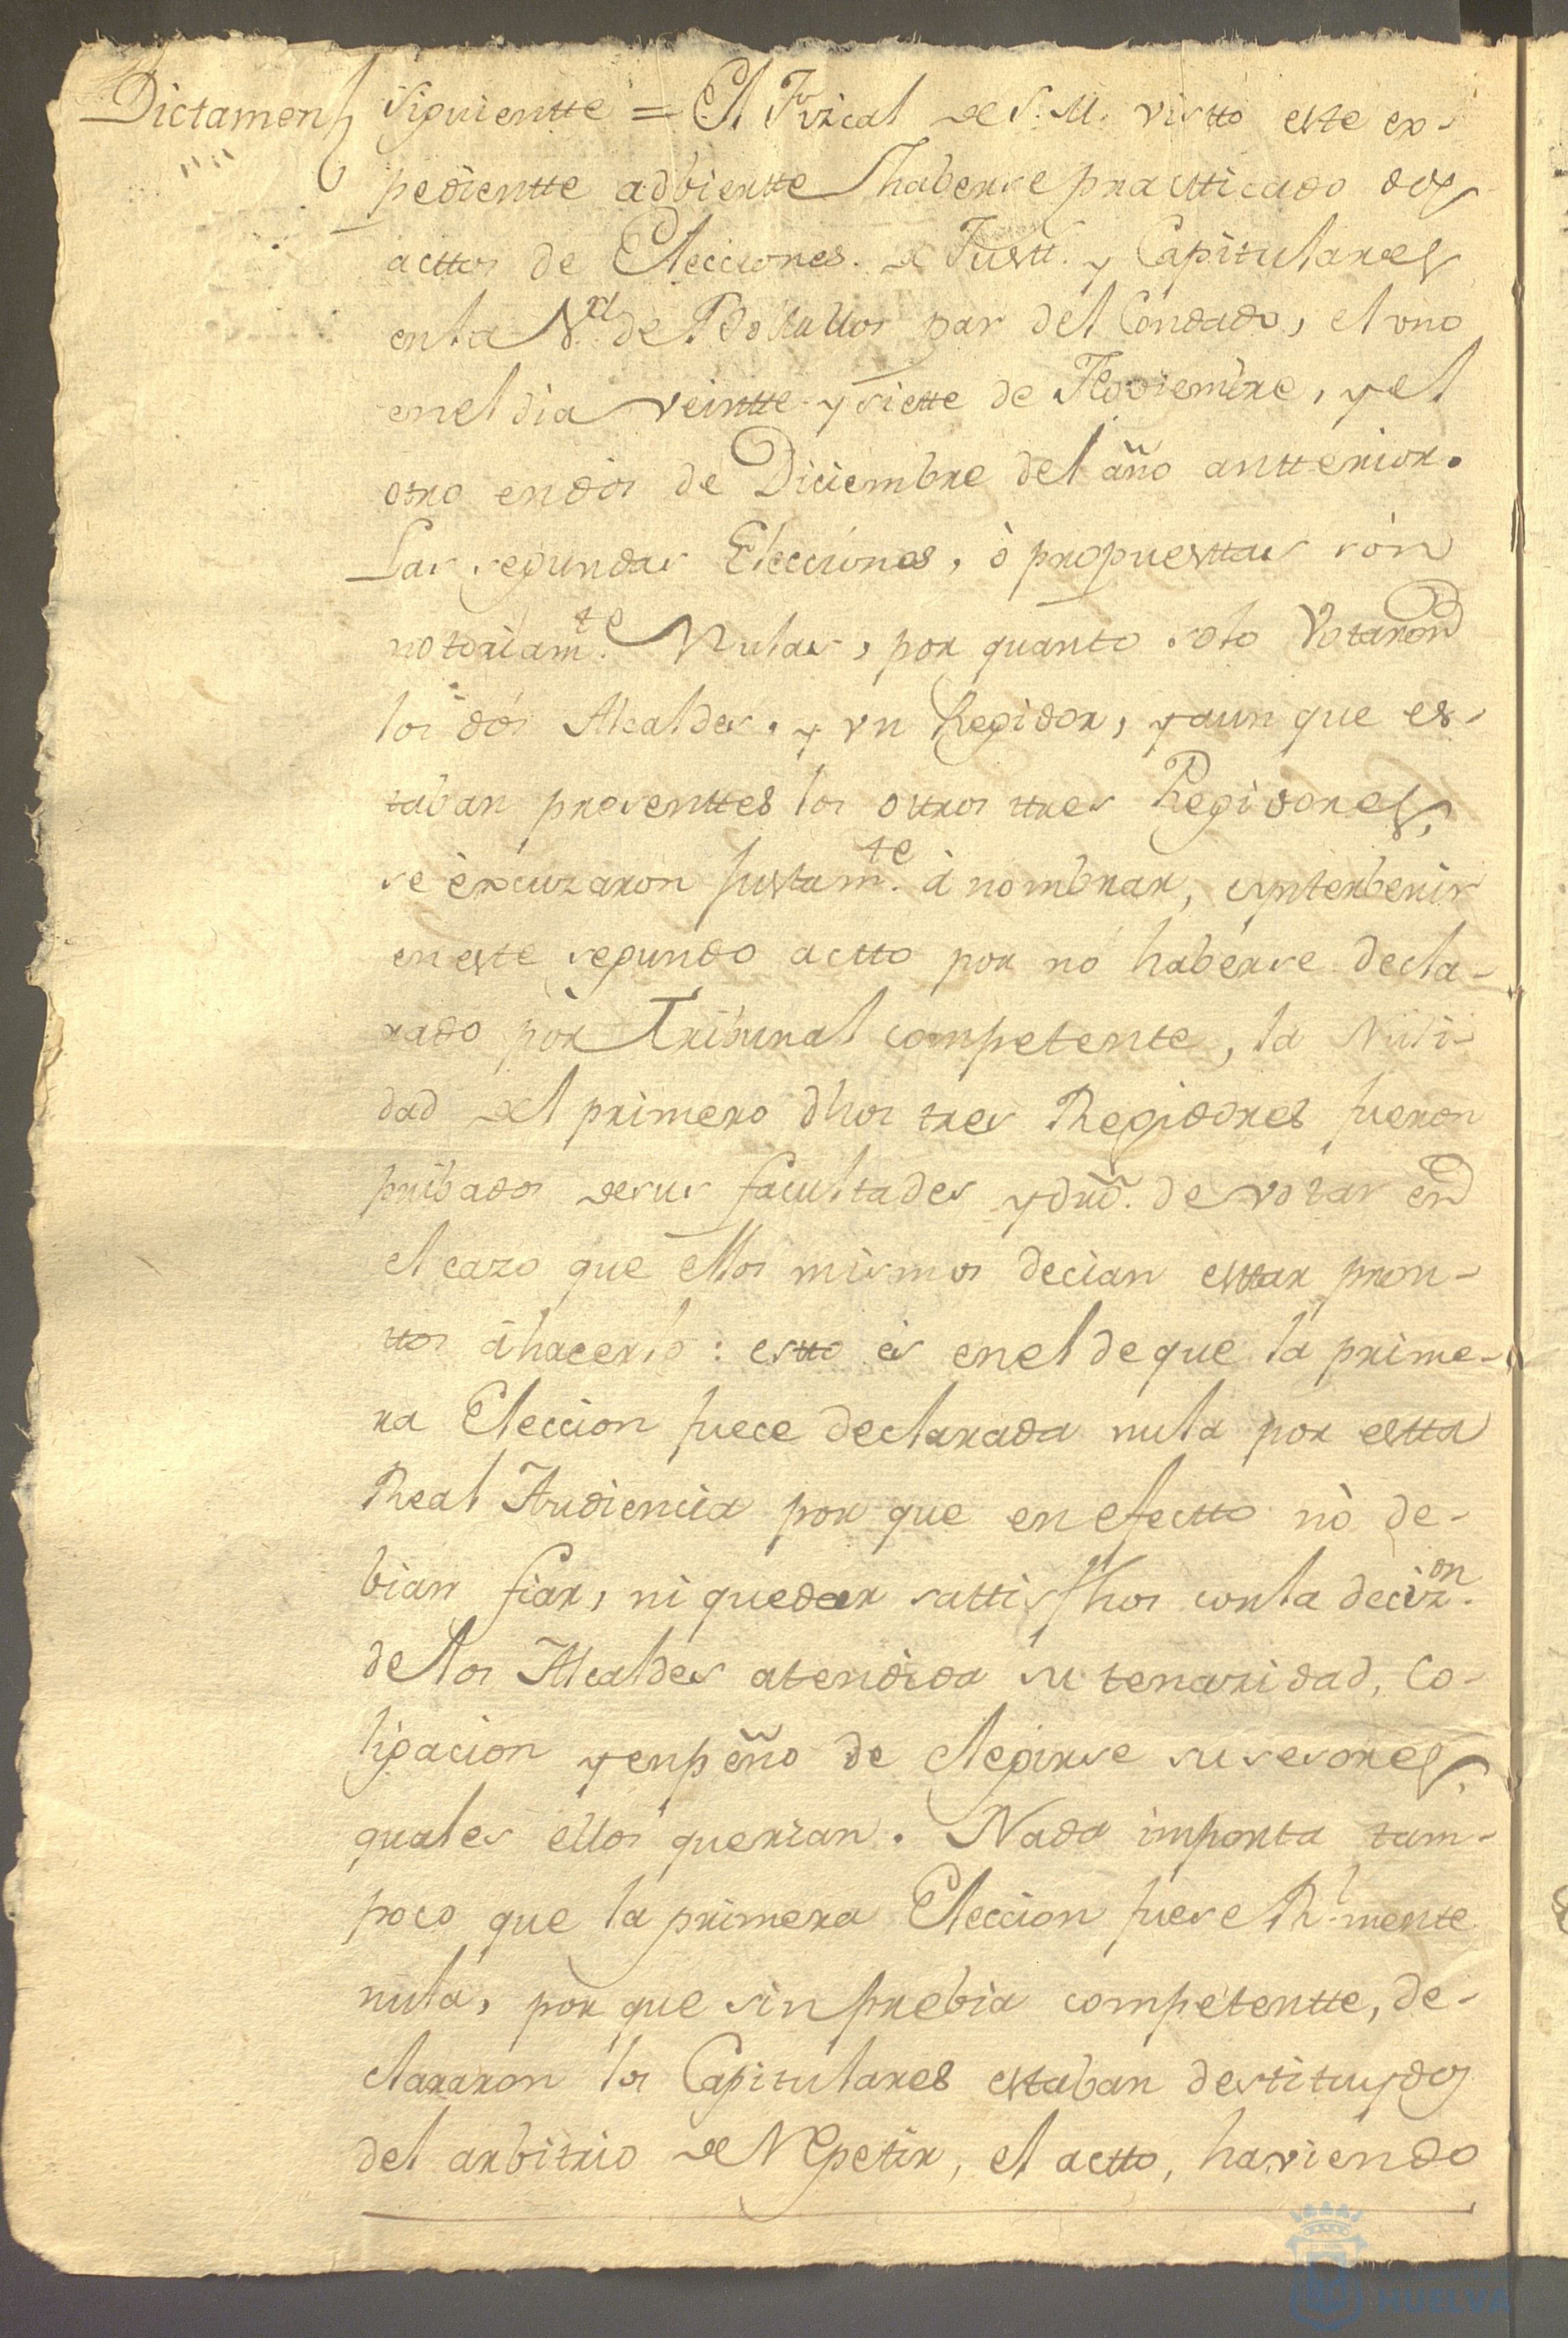 Dictamen
siguientte = El Fizcal de S. M. vistto este ex-
pedientte adbiertte haberse practticado dos
acttos de Elecciones. de Justt.ª y Capitulares
en la V.ª de Bollullos par del Condado, el uno
en el dia veintte y siette de Noviembre, y el
otro en dos de Diciembre del año antterior.
Las segundas Elecciones, ò propuesttas són
notoriam.te Nulas, por quanto solo Votaron
los dós Alcaldes, y un Regidor, y aun que es-
taban presenttes los ottros ttres Regidores,
se èxcuzaron Justam.te à nombrar, è ynterbenir
en este segundo actto por nó haberse decla-
rado pór Tribunal competente, la Nuli-
dad del primero dhos tres Regidores fueron
pribados de sus facultades y dró. de votar en
el cazo que ellos mismos decian esttar pron-
ttos à hacerlo: estto és en el de que la prime-
ra Eleccion fuece declarada nula por estta
Real Audiencia por que en efectto nò de-
bian fiar, ni quedar sattisfhos con la deciz.on
de los Alcaldes atendida su tenazidad, Co-
ligacion y enpeño de elegirse susesores,
quales ellos querian. Nada importa tam-
poco que la primera Eleccion fuese R.lmente
nula, por que sin prebia competentte, de-
clararon los Capitulares estaban destituydos
del arbitrio de Repetir, el actto, haviendo
HUELVA